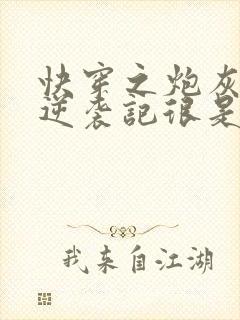 快穿之炮灰
逆袭記很是
我来自江湖